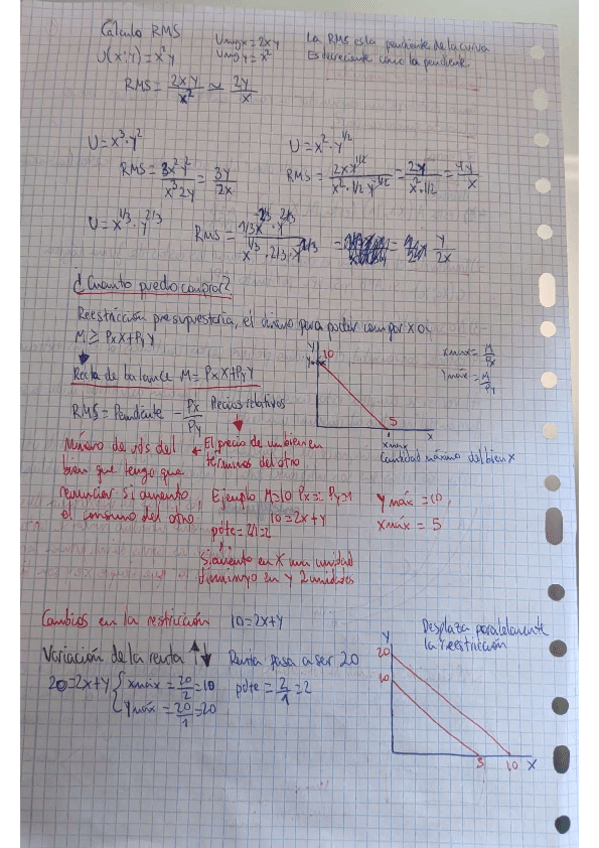 Cálculo RMS
U(x,y)=x²y
Umgx=2xy
Umgy=x²
La RMS es la pendiente de la curva
Es decreciente como la pendiente
RMS=2xy/x² ~ 2y/x
U=x³·y²
RMS=3x²y²/x³2y=3y/2x
U=x²·y^1/2
RMS=2xy^1/2/x²·1/2y^-1/2=2y/x²·1/2=4y/x
U=x^1/3·y^2/3
RMS=1/3x^-2/3·y^2/3/x^1/3·2/3·y^-1/3
= y/2x
¿Cuanto puedo comprar?
Reestricción presupuestaria, el dinero para poder comprar x o y
M≥PxX+PyY
Recta de balance M=PxX+PyY
RMS=Pendiente -Px/Py
Precios relativos
El precio de un bien en
términos del otro
Número de uds del
bien que tengo que
renunciar si aumento
el consumo del otro
Y
10
5
xmax
x
Cantidad máxima del bien x
xmáx=M/Px
Ymáx=M/Py
Ejemplo M=10 Px=2 Py=1
10=2x+y
pdte=2/1=2
Si aumento en X una unidad
disminuyo en Y 2 unidades
Ymáx=10,
xmáx=5
Cambios en la restricción 10=2x+y
Variación de la renta ↑↓ Renta pasa a ser 20
20=2x+y { xmáx=20/2=10
Ymáx=20/1=20
pdte=2/1=2
Desplaza paralelamente
la reestricción
Y
20
10
5
10
X